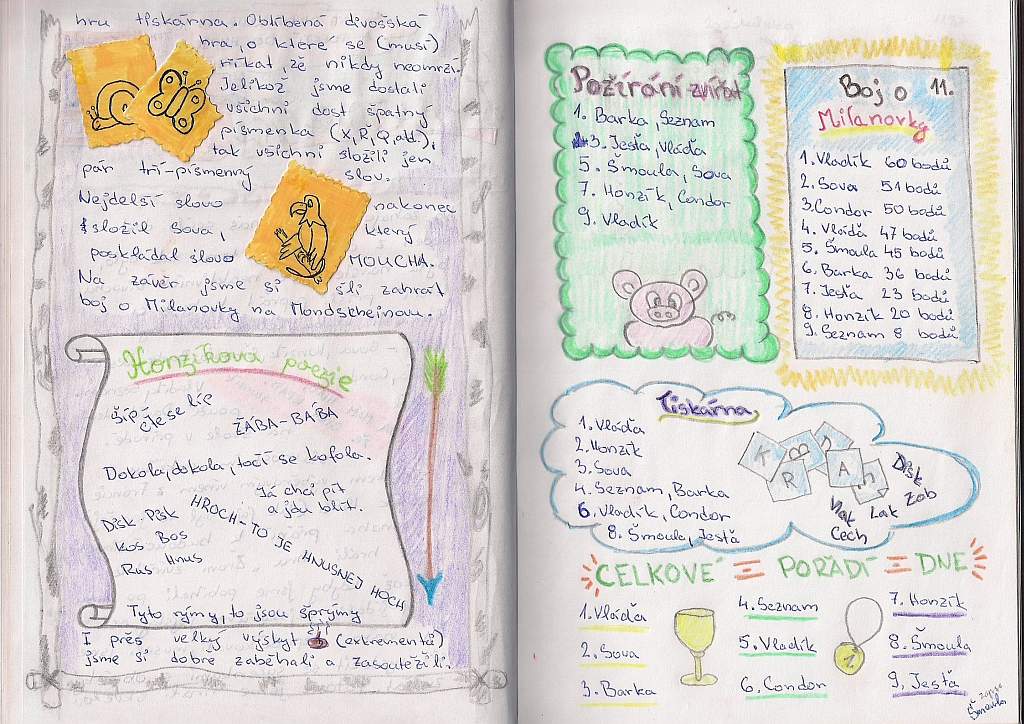 hru tiskárna. Oblíbená divošská
hra, o které se (musí)
říkat, že nikdy neomrzí.
Jelikož jsme dostali
všichni dost špatný
písmenka (X, Ř, Q, atd.),
tak všichni složili jen
pár tří-písmenný slov.
Nejdelší slovo nakonec
složil Sova, který
poskládal slovo MOUCHA.
Na závěr jsme si šli zahrát
boj o Milanovky na Mondscheinau.
Honzíkova poezie
Šíp
čie se líp
ŽÁBA-BÁBA
Dokola, dokola, točí se kofola.
Já chci pít
a jdu blít.
Disk-Pisk
Kos Bos
Rus Hnus
HROCH-TO JE HNUSNEJ HOCH
Tyto rýmy, to jsou šprýmy
I přes velký výskyt (extrementů)
jsme si dobře zaběhali a zasoutěžili.
Požírání zvířat
1. Barka, Seznam
3. Jesťa, Vláďa
5. Šmoula, Sova
7. Honzík, Condor
9. Vladík
Boj o 11.
Milanovky
1. Vladík 60 bodů
2. Sova 51 bodů
3. Condor 50 bodů
4. Vláďa 47 bodů
5. Šmoula 45 bodů
6. Barka 36 bodů
7. Jesťa 23 bodů
8. Honzík 20 bodů
9. Seznam 8 bodů
Tiskárna
1. Vláďa
2. Honzík
3. Sova
4. Seznam, Barka
6. Vladík, Condor
8. Šmoula, Jesťa
K R B A
Disk
Zob
Vlak Lak
Cech
CELKOVÉ POŘADÍ DNE
1. Vláďa
2. Sova
3. Barka
4. Seznam
5. Vladík
6. Condor
1.
7. Honzík
8. Šmoula
9. Jesťa